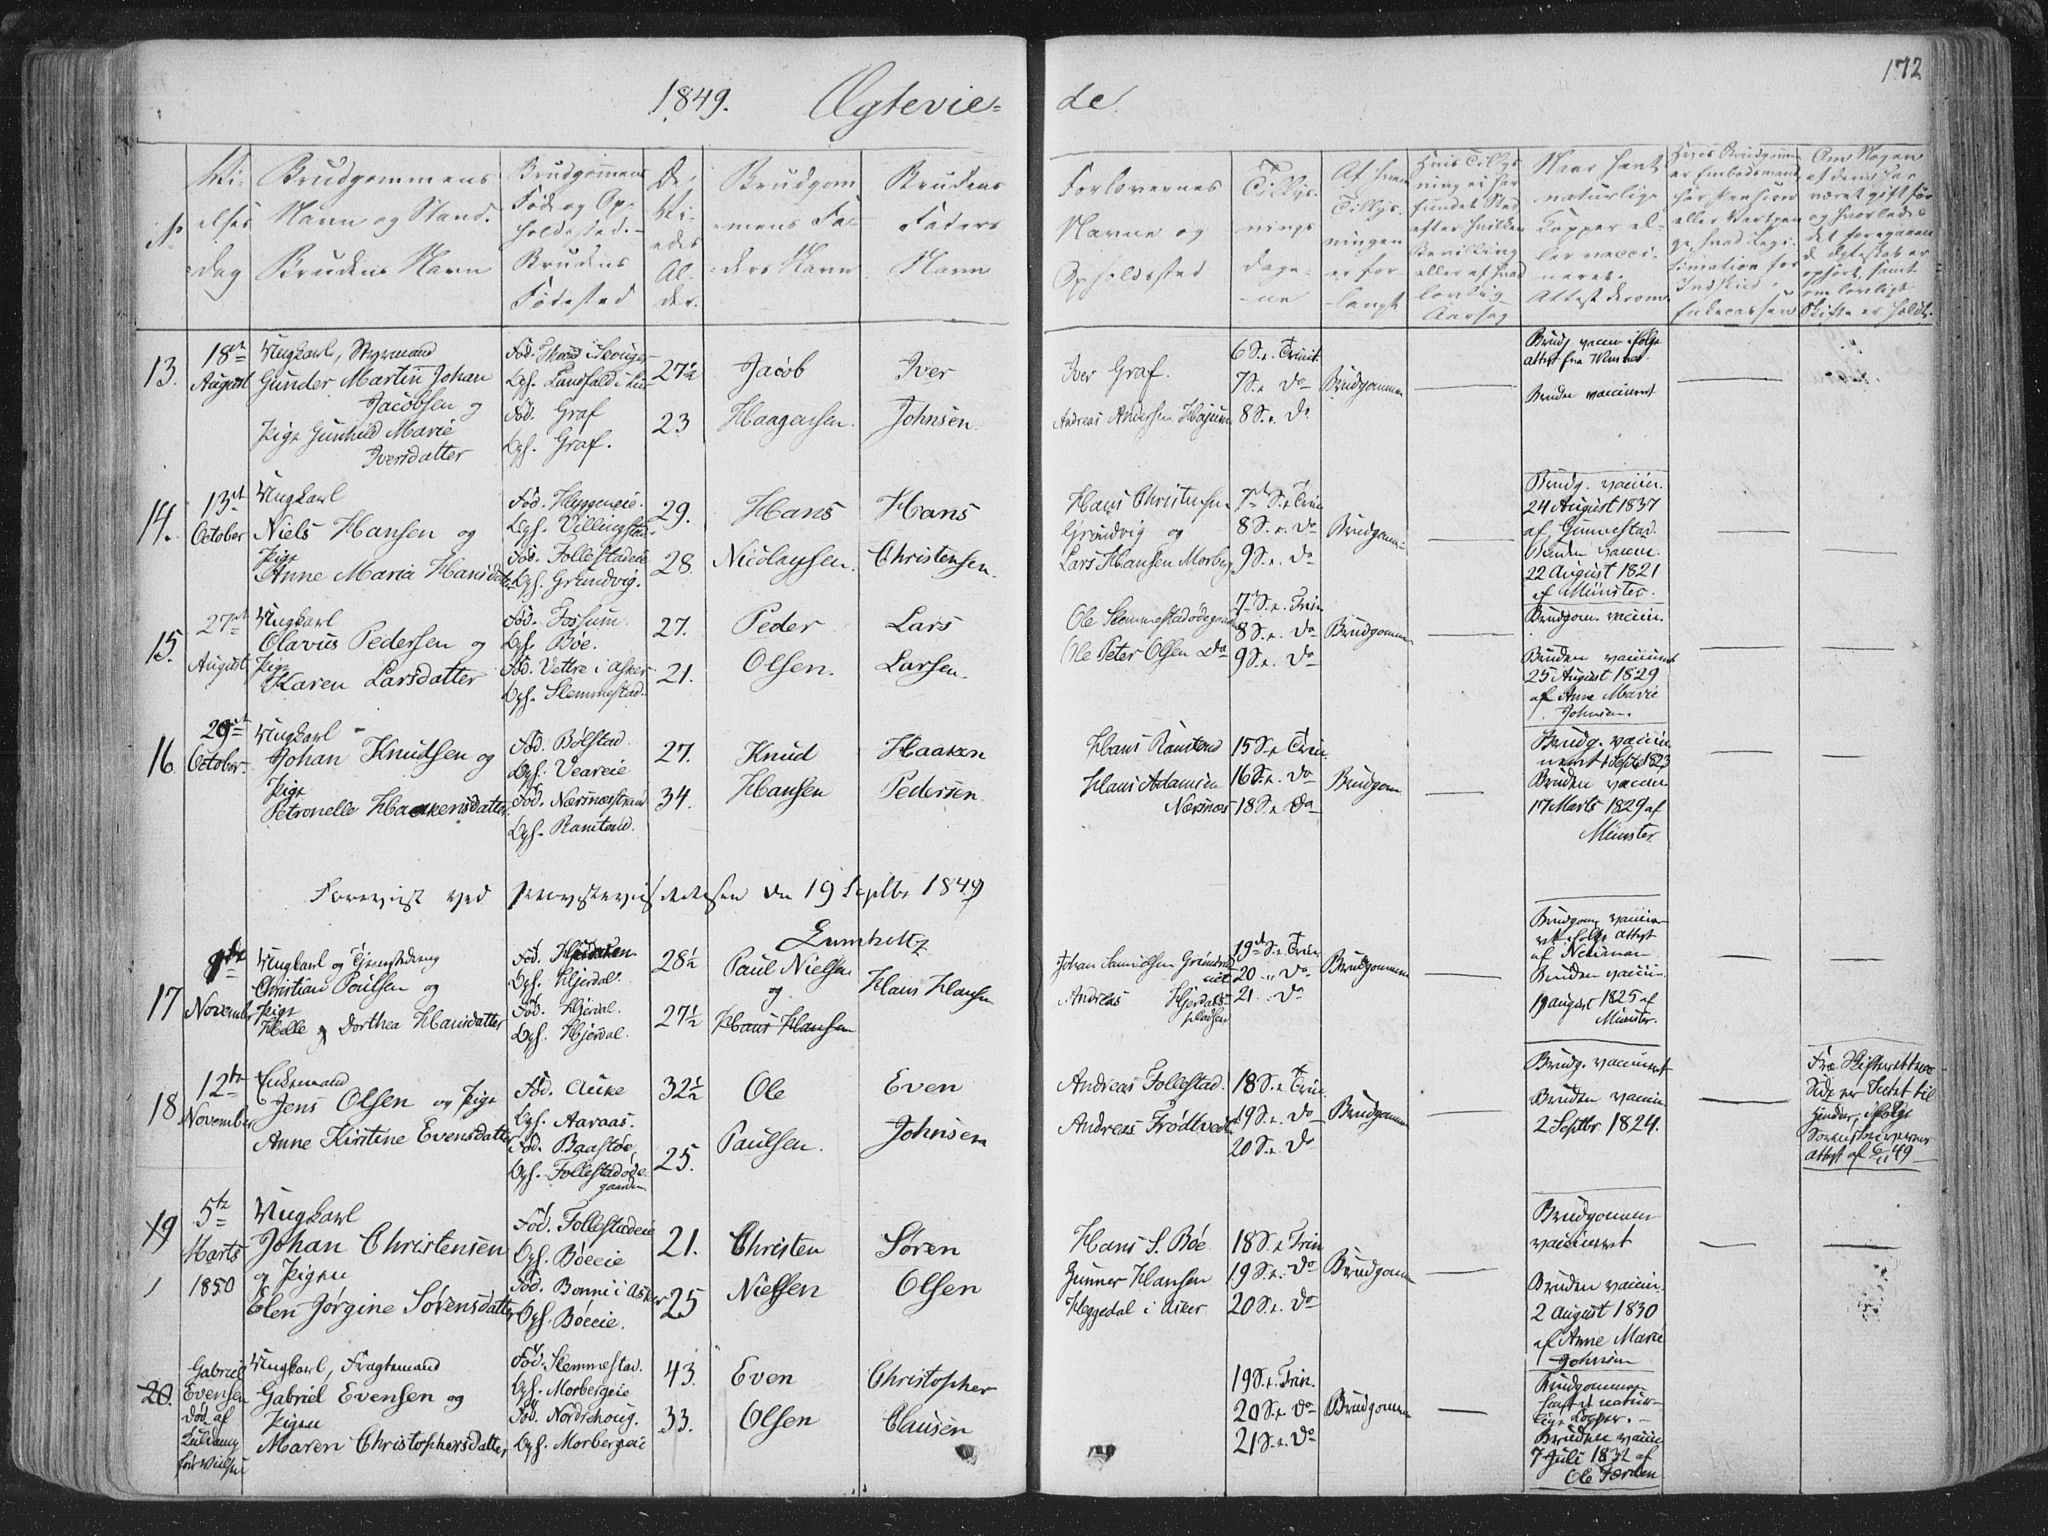 172
1849. Ægtevie=
de.
No
Vi-
elses
Dag
Brudgommens
Navn og Stand.
Brudens Navn
Brudgommens
Føde og Op-
holdssted.
Brudens
Fødested
De-
Vi-
edes
Al-
der.
Brudgom
mens Fa-
ders Navn
Brudens
Faders
Navn
Forlovernes
Navne og
Opholdssted
Tillys-
nings
Dage-
ne
Af hvem
Tillys-
ningen
er for-
langt
13.
18de
August
Ungkarl, Styrmand
Gunder Martin Johan
Jacobsen og
Pige Gunhild Marie
Iversdatter
Fød. Graf
Oph. Graf.
27½
23
Jacob
Haagensen.
Iver
Johnsen.
Iver Graf.
Andreas Andersen
6 S. e. Trinit.
7 S. e. Do
8 S. e. Do
Brudgommen
Bruden vaccineret
14.
13de
October
Ungkarl
Niels Hansen og
Pige
Anne Maria Hansdatter
Fød. Heggumeie.
Oph. Villingstad.
Fød. Follestadeie
Oph. Grundvig.
29.
28.
Hans
Nicolaysen.
Hans
Christensen.
Hans Christensen
Grundvig og
Lars Hansen Morberg
7de S. e. Trin
8 S. e. Do
9 S. e. Do
Brudgommen
Brudg. vaccin.
24 August 1837
af Gunnestad.
Bruden vaccin.
22 August 1821
af Münster.
15.
27de
August
Ungkarl
Olavus Pedersen og
Pige
Karen Larsdatter
Fød. Fossum.
Oph. Bøe.
Fød. Vettre i Asker
Oph. Slemmestad.
27.
21.
Peder
Olsen.
Lars
Larsen.
Ole Slemmestadødegaard
Ole Peter Olsen Do
7de S. e. Trin
8 S. e. Do
9 S. e. Do
Brudgommen
Brudgom. vaccin.
Bruden vaccineret
25 August 1829
af Anne Marie
Johnsen.
16
29de
October.
Ungkarl
Johan Knudsen og
Pige
Petronelle Haakensdatter
Fød. Bølstad.
Oph. Veareie
Fød. Nærsnæsstrand
Oph. Ramtond.
27.
34.
Knud
Hansen
Haaken
Pedersen.
Hans Ramtond
Hans Adamsen
Nærsnæs
15 S. e. Trin.
16 S. e. Do
18 S. e. Do
Brudgom.
Brudg. vaccin
neret Septb 1823
Bruden vaccin
17 Marts 1829 af
Münster.
Foreviist ved Provstevisitatsen den 19 Septbr 1849
Lumholtz
17
November
Ungkarl og Tjenestedreng
Christian Paulsen og
Pige
Helle Dorthea Hansdatter
Oph. Hjerdal.
Fød. Hjerdal.
Oph. Hjerdal.
28½
27½
Paul Nielsen
og
Hans Hansen
Hans Hansen
Johan Samuelsen
Andreas Hjerdals-
pladsen
19de S. e. Trin.
20 .. Do
21 .. Do
Brudgommen
Brudgom vaccine-
ret ifølge attest
af Neuman
Bruden vaccin.
19 august 1825 af
Münster.
18
12te
November
Enkemand
Jens Olsen og Pige
Anne Kirstine Evensdatter
Fød. Auke
Oph. Aaraas.
Fød. Baastøe,
Oph. Follestadøde-
gaarden
32½
25.
Ole
Paulsen.
Even
Johnsen
Andreas Follestad.
Andreas Frødtvedt
18 S. e. Trin.
19 S. e. Do
20 S. e. Do
Brudgommen
Brudg. vaccineret
Bruden vaccin
2 Septbr 1824.
Fra Skifterettens
Side er Intet til
Hinder, ifølge
Sorenskriverens
attest af 6/11 49
19
5te
Marts
1850
Ungkarl
Johan Christensen
og Pigen
Elen Jørgine Sørensdatter
Fød. Follestadeie
Oph. Bøeeie
Fød. Bonni i Asker
Oph. Bøeeie.
21.
25
Christen
Nielsen
Søren
Olsen
Hans S. Bøe
Gunner Hansen
Heggedal i Asker
18 S. e. Trin
19 S. e. Do
20 S. e. Do
Brudgommen
Brudgommen
vaccineret
Bruden vaccin.
2 August 1830
af Anne Marie
Johnsen
20.
Gabriel
Evensen
død af
før Vielsen
Ungkarl, Fragtemand
Gabriel Evensen og
Pigen
Maren Christophersdatter
Fød. Slemmestad.
Oph. Morbergeie
Fød. Nordrehoug.
Oph. Morbergeie
43.
33.
Even
Olsen
Christopher
Clausen
19 S. e. Trin.
20 S. e. Do
21 S. e. Do
Brudgommen
Brudgommen
havt de natur-
lige Kopper.
Bruden vaccin
7 Juli 1832 af
Ole Færden